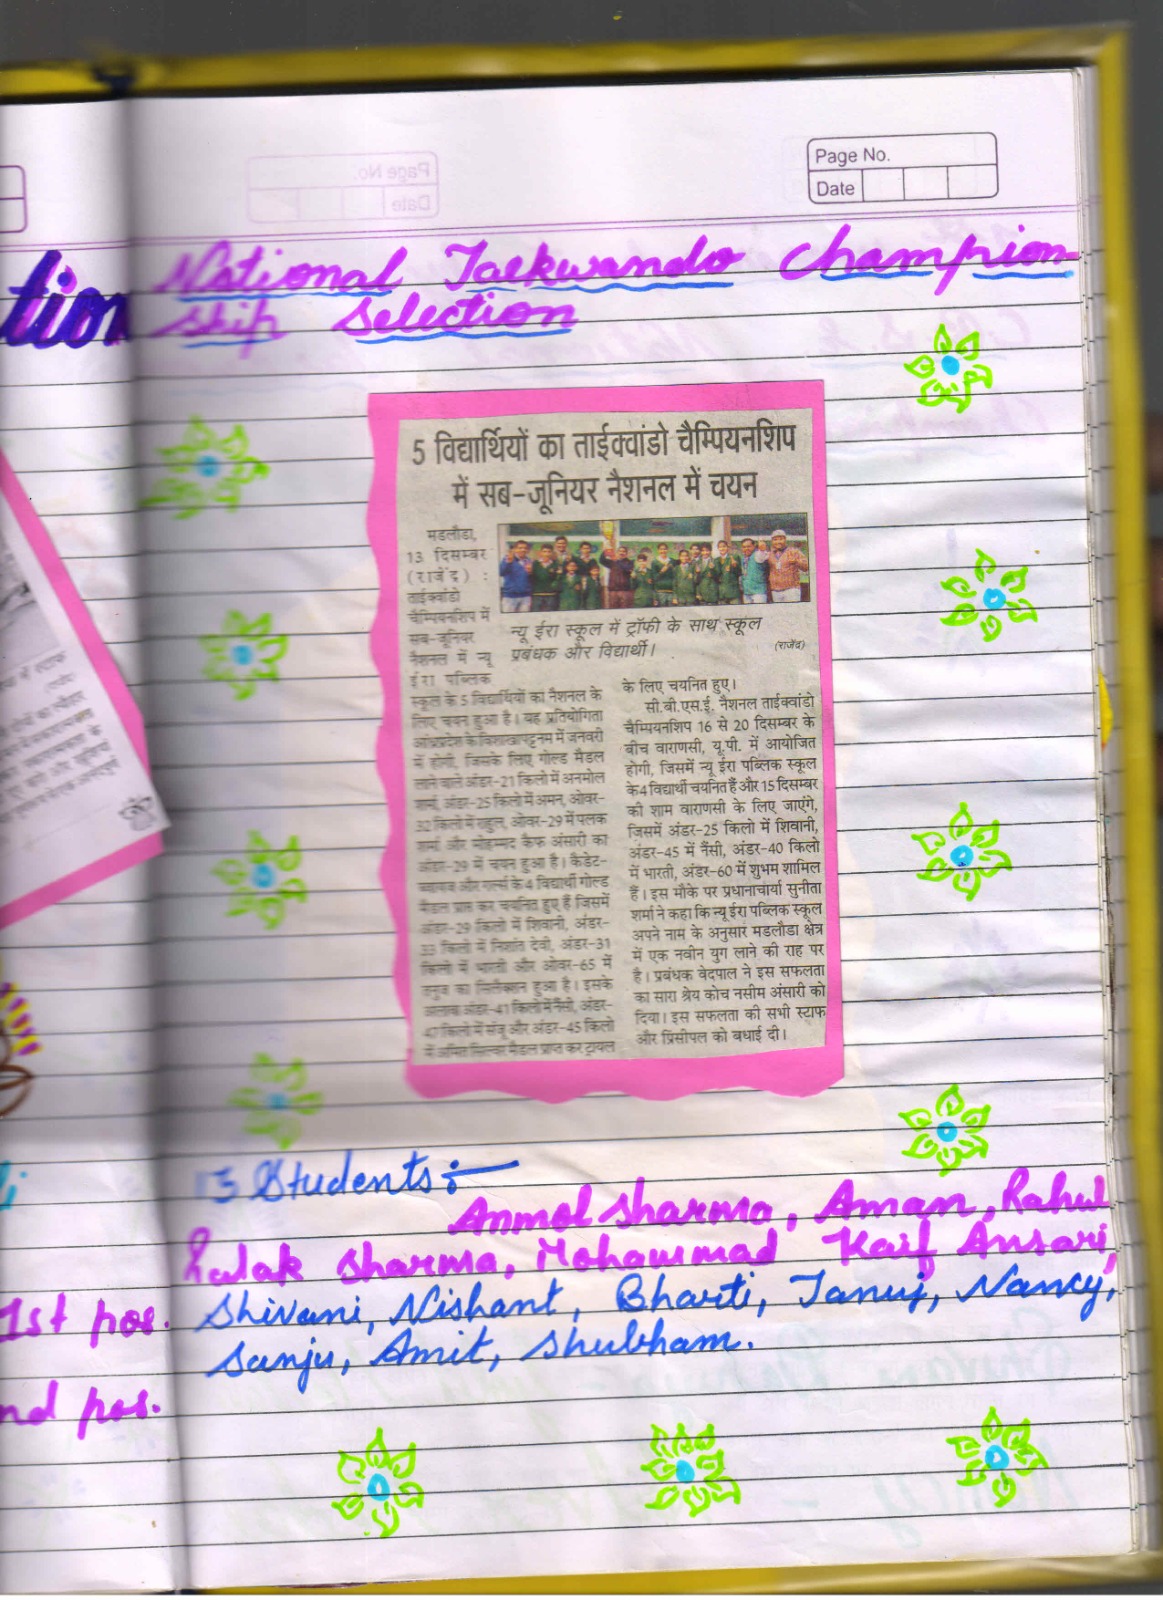 Page No.
Date
National Taekwando Champion
ship Selection
tion
5 विद्यार्थियों का ताईक्वांडो चैम्पियनशिप
में सब-जूनियर नैशनल में चयन
मडलौडा,
13 दिसम्बर
(राजेंद्र) :
ताईक्वांडो
चैम्पियनशिप में
सब-जूनियर
नैशनल में न्यू
ईरा पब्लिक
स्कूल के 5 विद्यार्थियों का नैशनल के
लिए चयन हुआ है। यह प्रतियोगिता
आंध्रप्रदेश के विशाखापट्टनम में जनवरी
में होगी, जिसके लिए गोल्ड मैडल
लाने वाले अंडर-21 किलो में अनमोल
शर्मा, अंडर-25 किलो में अमन, ओवर-
32 किलो में राहुल, ओवर-29 में पलक
शर्मा और मोहम्मद कैफ अंसारी का
अंडर-29 में चयन हुआ है। कैडेट-
और गर्ल्स के 4 विद्यार्थी गोल्ड
मैडल प्राप्त कर चयनित हुए हैं जिसमें
अंडर-29 किलो में शिवानी, अंडर-
33 किलो में निशांत देवी, अंडर-31
किलो में भारती और ओवर-65 में
तनुज का सिलैक्शन हुआ है। इसके
अलावा अंडर-41 किलो में नैंसी, अंडर-
47 किलो में संजू और अंडर-45 किलो
में अमित सिल्वर मैडल प्राप्त कर ट्रायल
न्यू ईरा स्कूल में ट्रॉफी के साथ स्कूल
प्रबंधक और विद्यार्थी। (राजेंद्र)
के लिए चयनित हुए।
सी.बी.एस.ई. नैशनल ताईक्वांडो
चैम्पियनशिप 16 से 20 दिसम्बर के
बीच वाराणसी, यू.पी. में आयोजित
होगी, जिसमें न्यू ईरा पब्लिक स्कूल
के 4 विद्यार्थी चयनित हैं और 15 दिसम्बर
की शाम वाराणसी के लिए जाएंगे,
जिसमें अंडर-25 किलो में शिवानी,
अंडर-45 में नैंसी, अंडर-40 किलो
में भारती, अंडर-60 में शुभम शामिल
हैं। इस मौके पर प्रधानाचार्या सुनीता
शर्मा ने कहा कि न्यू ईरा पब्लिक स्कूल
अपने नाम के अनुसार मडलौडा क्षेत्र
में एक नवीन युग लाने की राह पर
है। प्रबंधक वेदपाल ने इस सफलता
का सारा श्रेय कोच नसीम अंसारी को
दिया। इस सफलता की सभी स्टाफ
और प्रिंसीपल को बधाई दी।
13 Students:-
Anmol Sharma, Aman, Rahul
Palak Sharma, Mohammad Kaif Ansari,
Shivani, Nishant, Bharti, Tanuj, Nancy,
Sanju, Amit, Shubham.
1st pos.
nd pos.